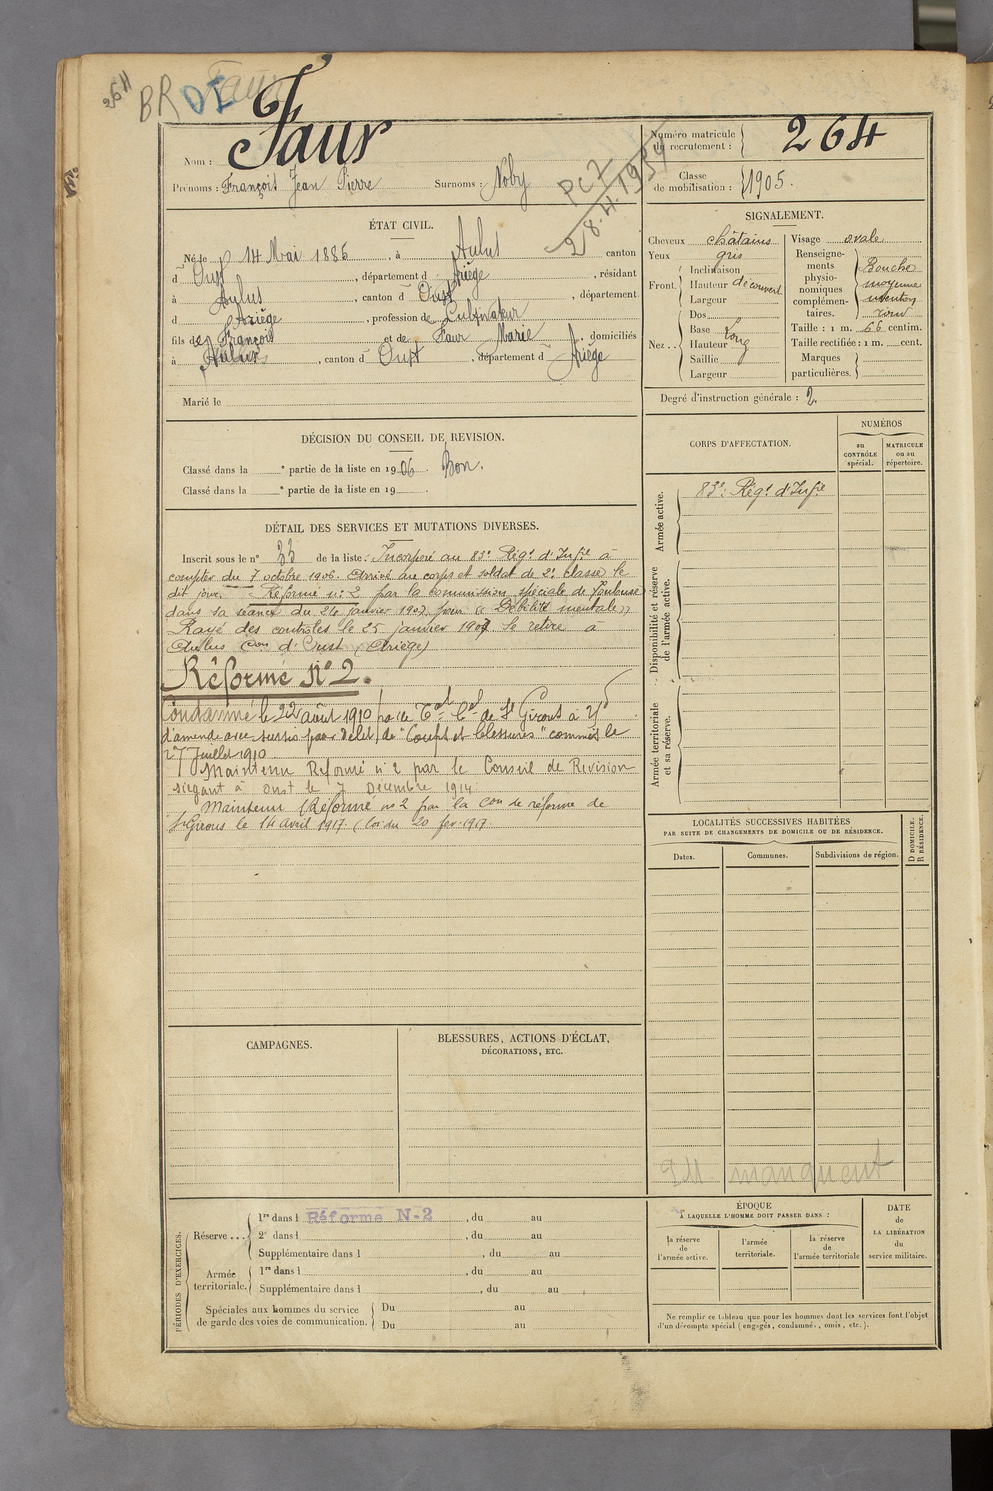 2511
BR
Faur
Nom : Faur
Prénoms : François Jean Pierre Surnoms : Noby
PC 7
28.4.1954
Numéro matricule du recrutement : 264
Classe de mobilisation : 1905.
ÉTAT CIVIL.
Né le 14 Mai 1885, à Aulus canton
d' Oust, département d Ariège, résidant
à Aulus, canton d' Oust, département
d Ariège, profession de Cultivateur
fils de François et de Faur Marie, domiciliés
à Aulus, canton d' Oust, département d Ariège
Marié le
SIGNALEMENT.
Cheveux châtains
Yeux gris
Front. Inclinaison
Hauteur découvert
Largeur
Nez .. Dos
Base Long
Hauteur
Saillie
Largeur
Visage ovale
Renseignements physionomiques complémentaires. Bouche moyenne menton rond
Taille : 1 m. 66 centim.
Taille rectifiée : 1 m. cent.
Marques particulières.
Degré d'instruction générale : 2.
DÉCISION DU CONSEIL DE REVISION.
Classé dans la e partie de la liste en 1906. Bon.
Classé dans la e partie de la liste en 19 .
DÉTAIL DES SERVICES ET MUTATIONS DIVERSES.
Inscrit sous le n° 33 de la liste : Incorporé au 83e Régt d'Infie à
compter du 7 octobre 1906. Arrivé au corps et soldat de 2e classe le
dit jour. Réformé n° 2 par la commission spéciale de Toulouse
dans sa séance du 24 janvier 1907 pour « Débilité mentale »
Rayé des contrôles le 25 janvier 1907 Se retire à
Aulus Con d'Oust (Ariège)
Réformé N° 2.
Condamné le 22 août 1910 par le Tal Cel de St Girons à 25f
d'amende avec sursis pour délit de "Coups et blessures" commis le
27 Juillet 1910
Maintenu Réformé n° 2 par le Conseil de Revision
siégant à Oust le 7 Décembre 1914.
Maintenu Réformé n° 2 par la Con de réforme de
St Girons le 14 avril 1917. (loi du 20 fev. 1917.
CORPS D'AFFECTATION.
NUMÉROS
au CONTRÔLE spécial.
MATRICULE ou au répertoire.
Armée active.
83e Régt d'Infie
Disponibilité et réserve de l'armée active.
Armée territoriale et sa réserve.
LOCALITÉS SUCCESSIVES HABITÉES
PAR SUITE DE CHANGEMENTS DE DOMICILE OU DE RÉSIDENCE.
Dates.
Communes.
Subdivisions de région.
D DOMICILE. R RÉSIDENCE.
manquent
CAMPAGNES.
BLESSURES, ACTIONS D'ÉCLAT,
DÉCORATIONS, ETC.
PÉRIODES D'EXERCICES.
Réserve ... 1re dans l Réformé N-2, du au
2e dans l , du au
Supplémentaire dans l , du au
Armée territoriale. 1re dans l , du au
Supplémentaire dans l , du au
Spéciales aux hommes du service de garde des voies de communication. Du au
Du au
ÉPOQUE
À LAQUELLE L'HOMME DOIT PASSER DANS :
la réserve de l'armée active.
l'armée territoriale.
la réserve de l'armée territoriale
DATE de LA LIBÉRATION du service militaire.
Ne remplir ce tableau que pour les hommes dont les services font l'objet
d'un décompte spécial (engagés, condamnés, omis, etc.).